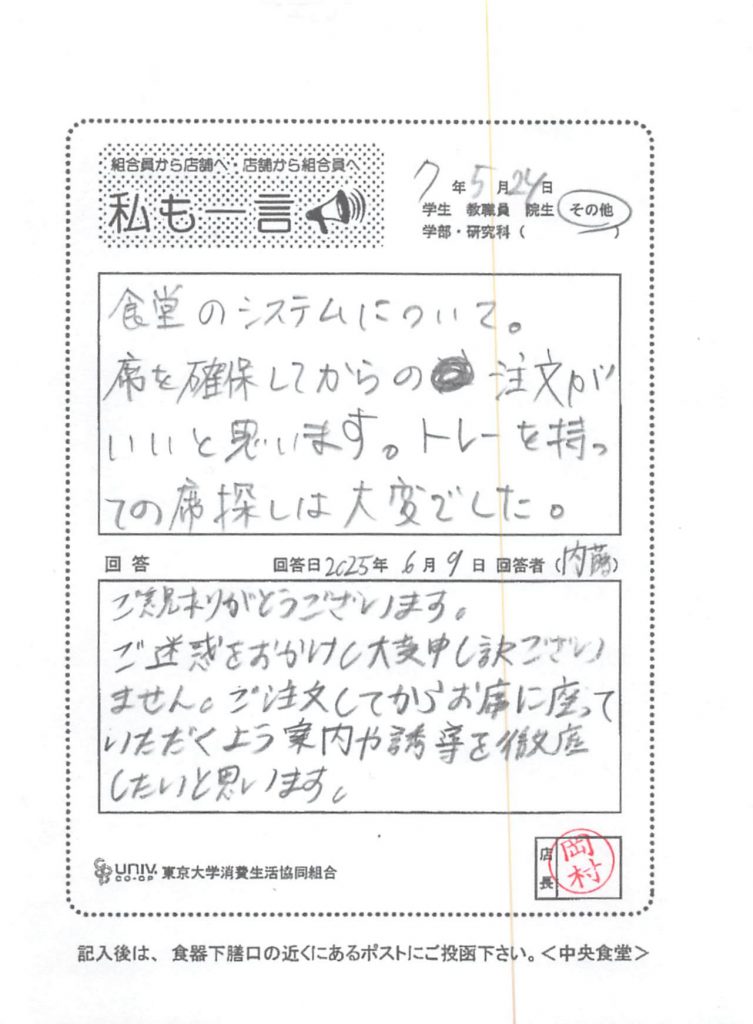 組合員から店舗へ・店舗から組合員へ
私も一言
7年5月24日
学生 教職員 院生 その他
学部・研究科( )
食堂のシステムについて。
席を確保してからの 注文が
いいと思います。トレーを持っ
ての席探しは大変でした。
回答 回答日2025年6月9日 回答者(内藤)
ご意見ありがとうございます。
ご迷惑をおかけし大変申し訳ござい
ません。ご注文してからお席に座って
いただくよう案内や誘導を徹底
したいと思います。
UNIV. CO-OP 東京大学消費生活協同組合
店長 岡村
記入後は、食器下膳口の近くにあるポストにご投函下さい。<中央食堂>